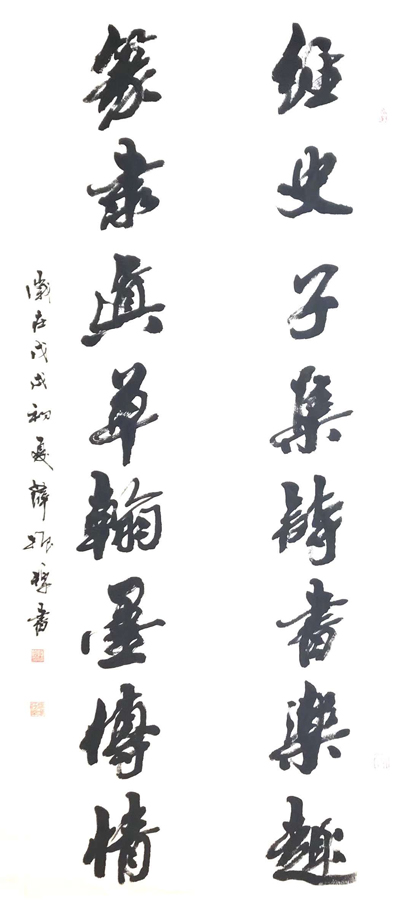 經史子集詩書樂趣
篆隶真草翰墨傳情
歲在戊戌初夏薛振學書